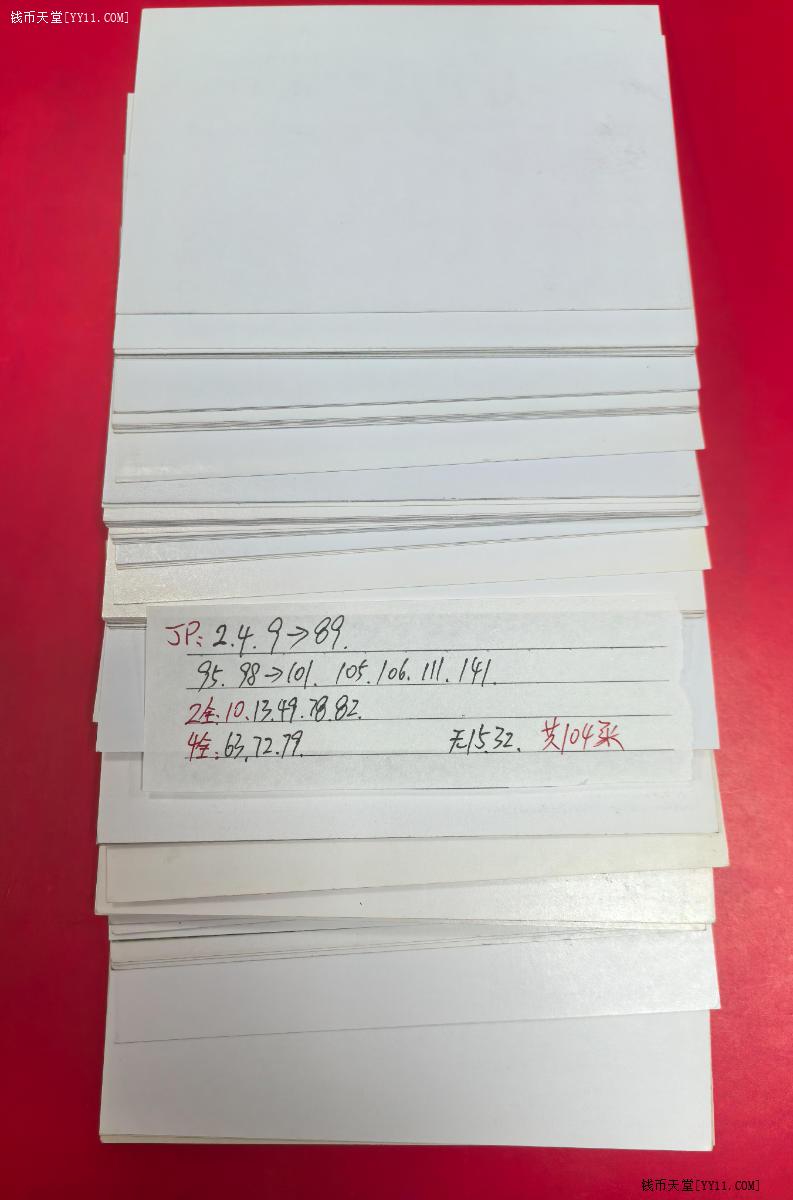 钱币天堂[YY11.COM]
JP: 2.4.9→89.
95.98→101.105.106.111.141.
2全:10.13.49.78.82.
4全:63.72.79. 无15.32. 共104采
钱币天堂[YY11.COM]